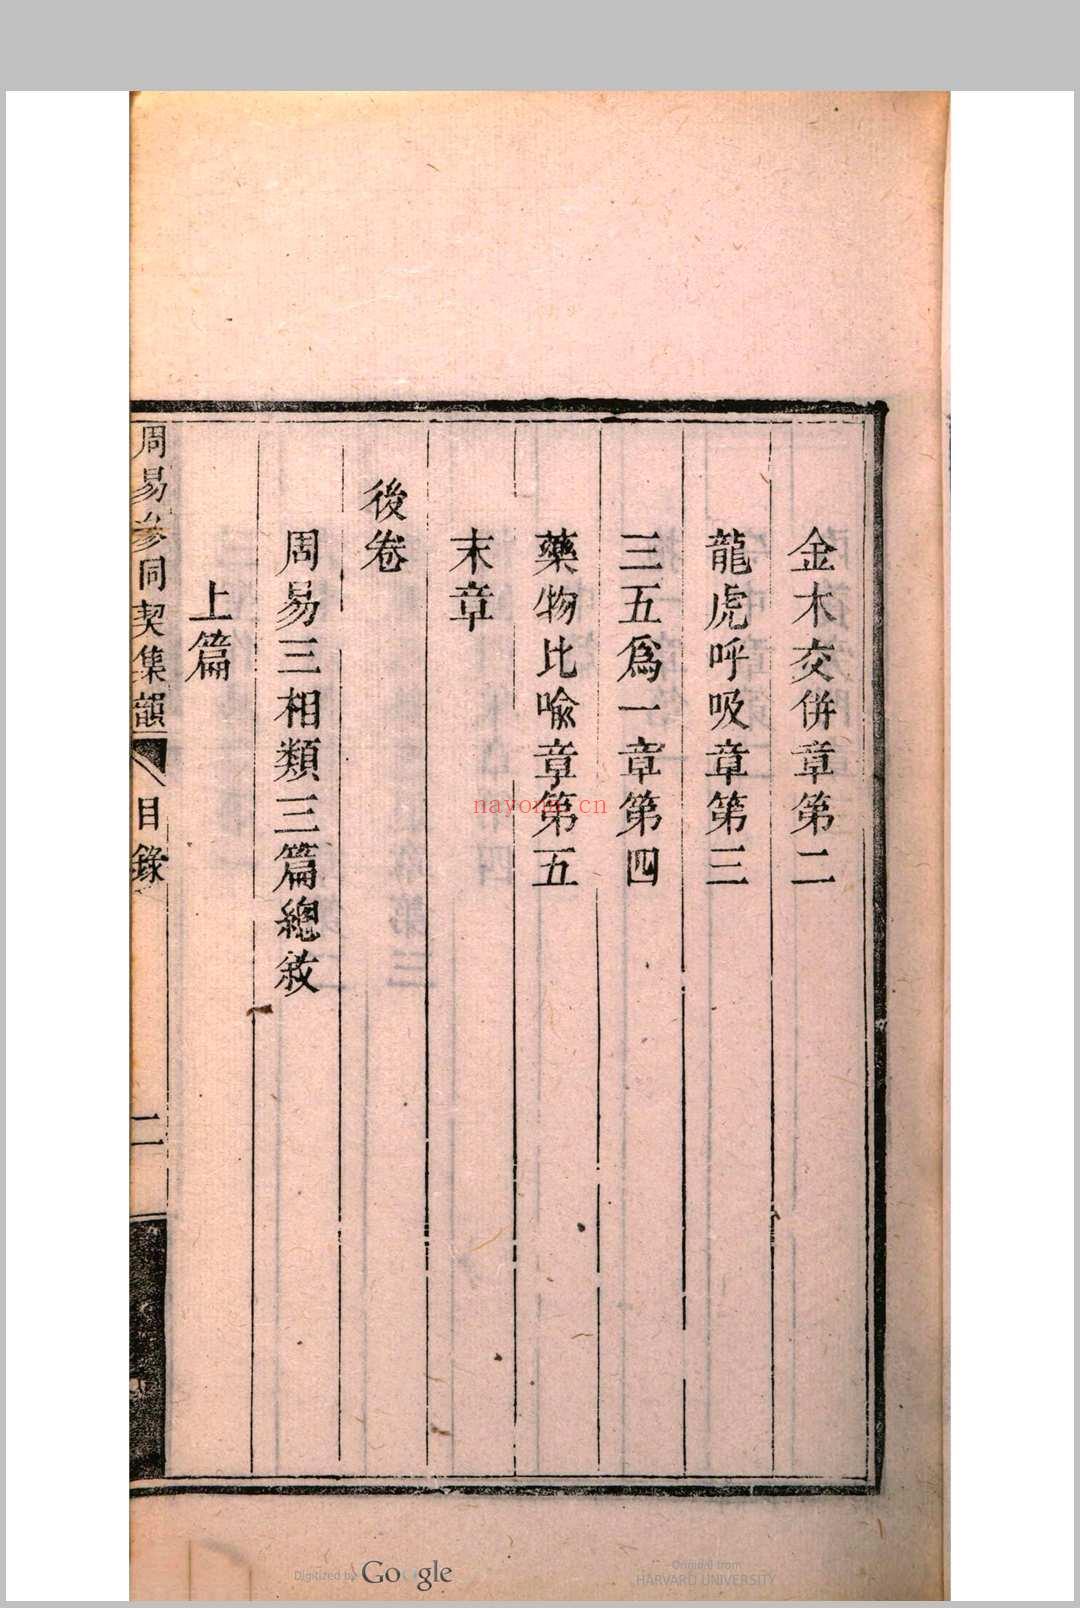 金木交併章第二
龍虎呼吸章第三
三五爲一章第四
藥物比喩章第五
末章
後卷
周易三相類三篇總敘
上篇
周易參同契集韻
目錄
二
nayona.cn
Digitized by Google
Original from
HARVARD UNIVERSITY